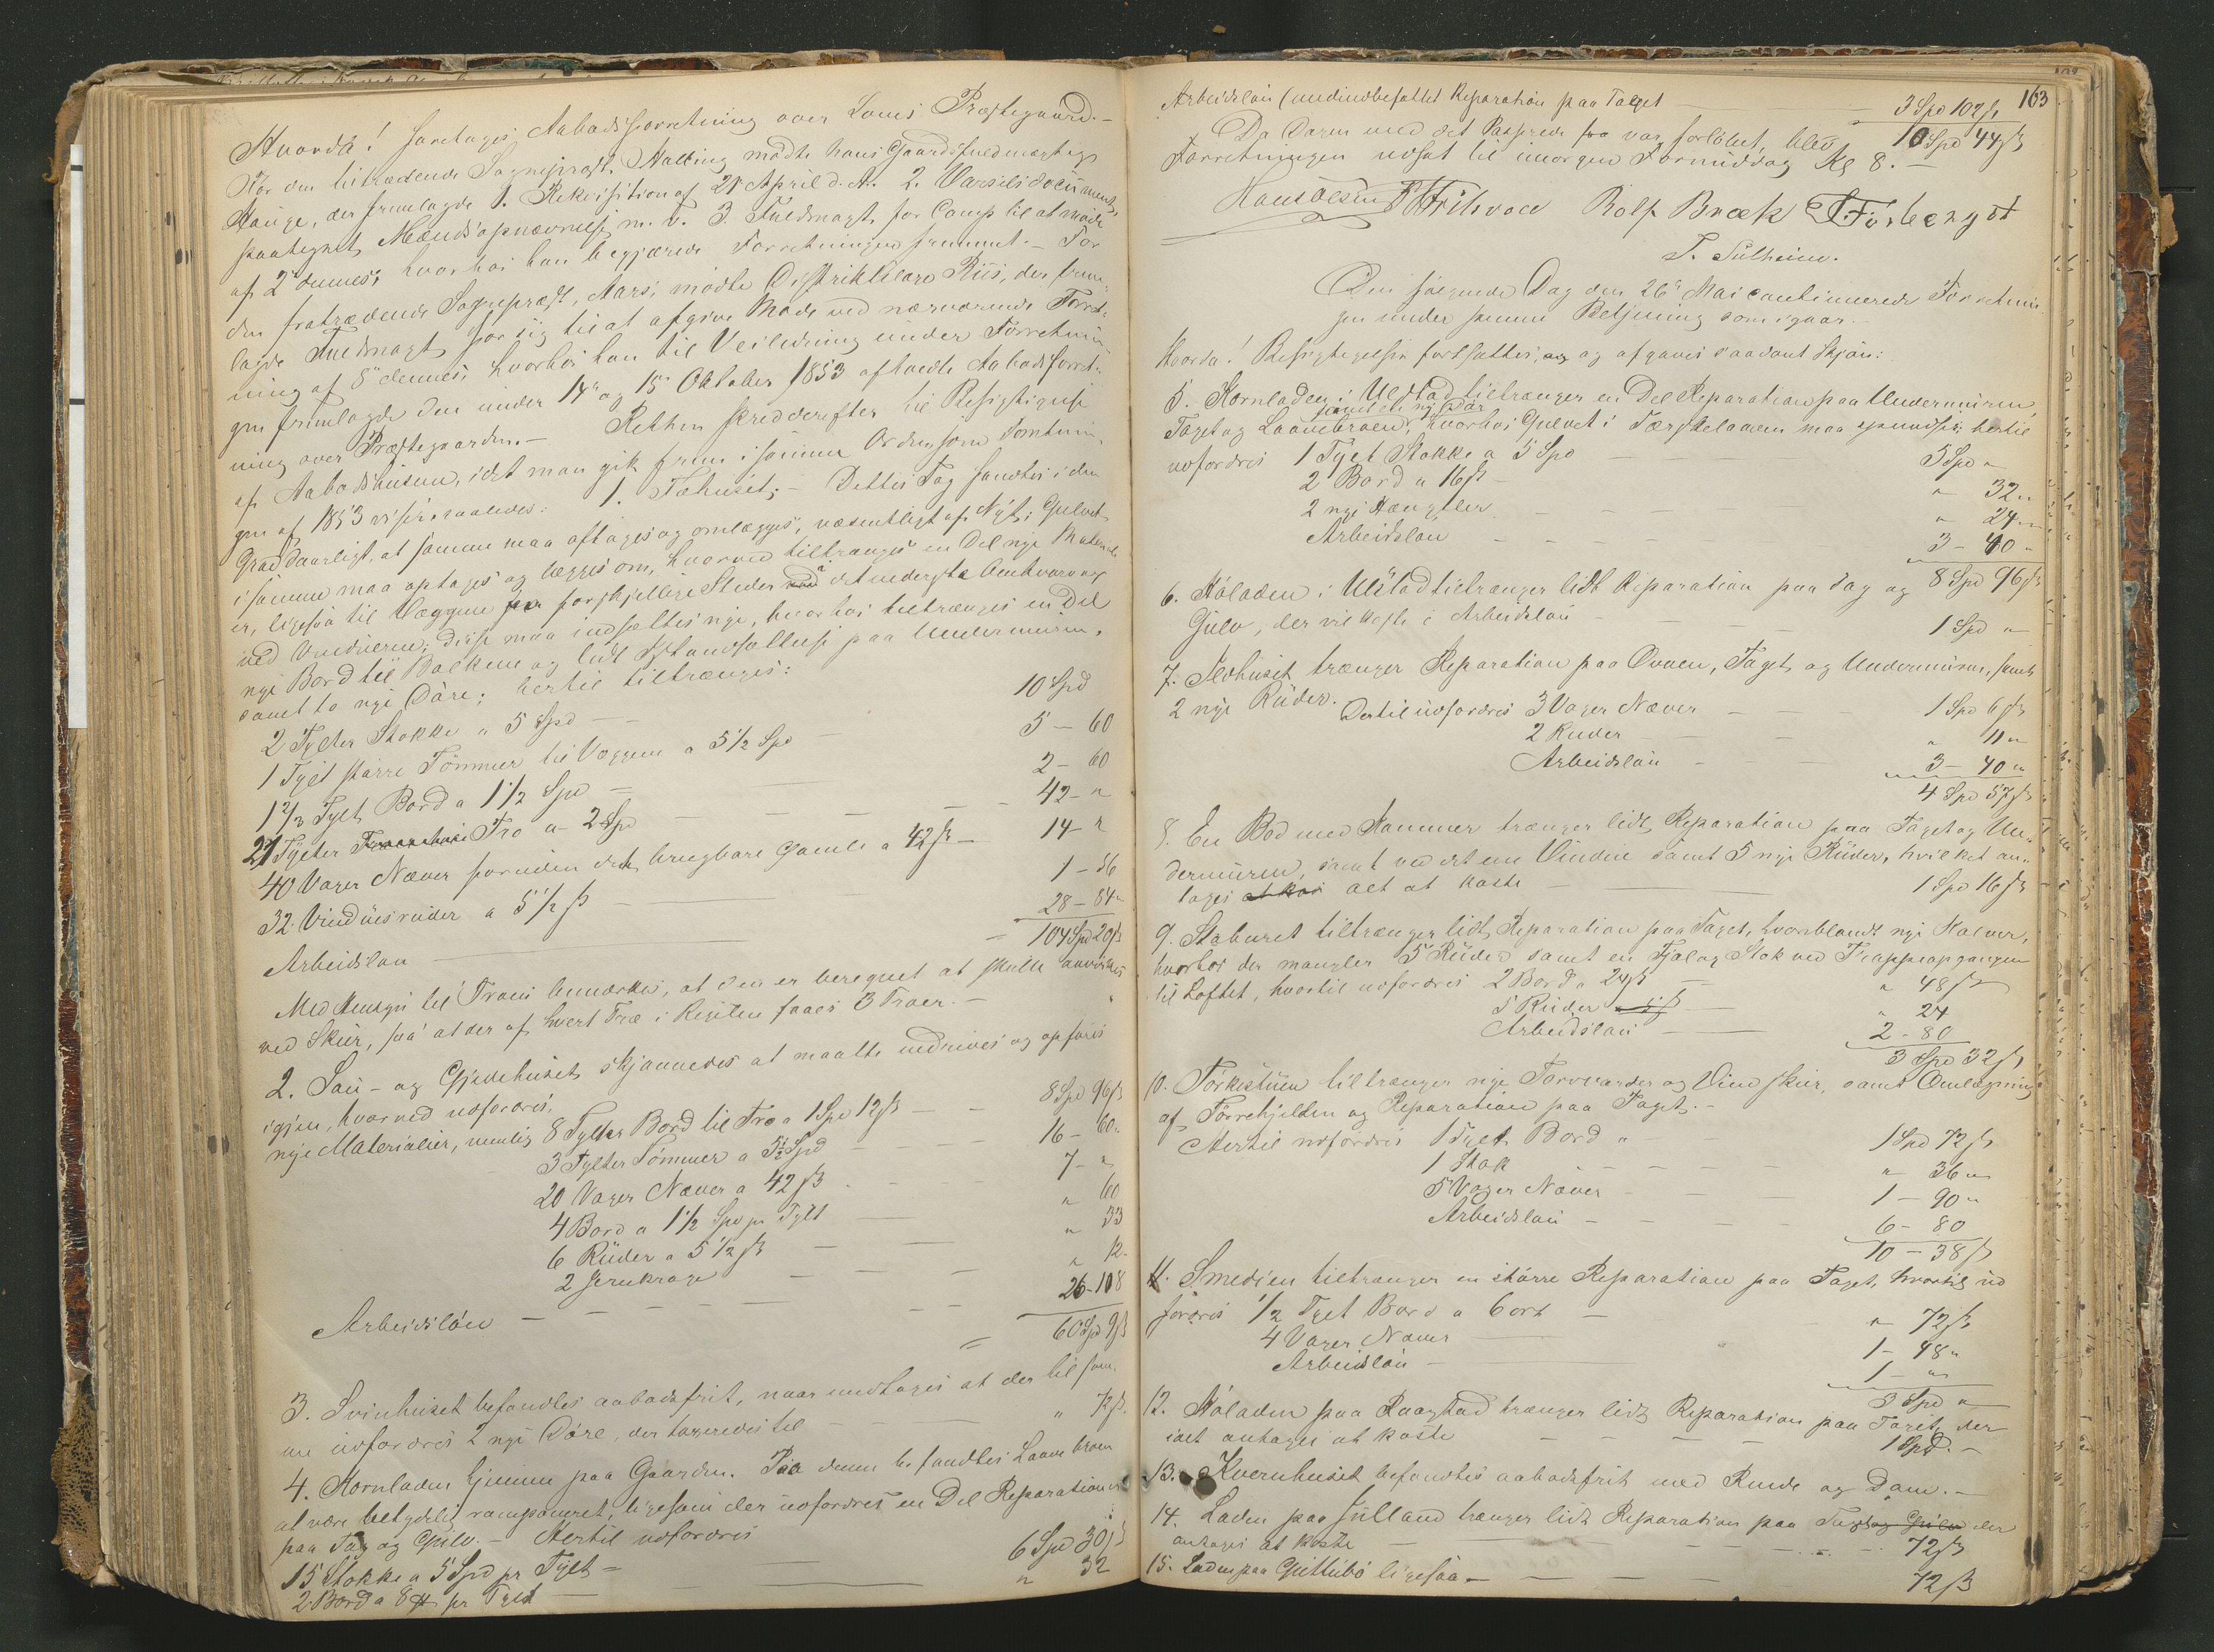 Hvorda! foretoges Aabodsforretning over Loms Præstegaard. —
For den tiltrædende Sognepræst, Halling mødte hans Gaardsfuldmægtig
Hauge, der fremlagde 1. Rekvisition af 21 April d. A. 2. Varselsdocument,
paategnet Mændsopnævnelse m. v. 3. Fuldmagt for Comp til at møde
af 2den dennes; hvorhos han begjærede Forretningen fremmet. — For
den fratrædende Sognepræst, Aars, mødte Distriktslæge Riis, der frem-
lagde Fuldmagt for sig til at afgive Møde ved nærværende Forret-
ning af 8de dennes; hvorhos han til Veiledning under Forretnin
gen fremlagde den under 14de og 15de Oktober 1853 afholdte Aabodsforret-
ning over Præstegaarden. — Retten skred derefter til Besigtigelse
af Aabodshusene, idet man gik frem i samme Orden, som Forretnin-
gen af 1853 viser. saaledes: 1. Fæhuset. — Dettes Tag fandtes i den
Grad daarligt, at samme maa aftages og omlægges, væsentligt af Nyt; Gulvet
i samme maa optages og lægges om, hvorved tiltrænges en Del nye Material
er, ligesaa til Væggene paa forskjellige Steder ved det nederste Omhvarv og
ved Vinduerne; disse maa indsættes nye, hvorhos tiltrænges en Del
nye Bord til Balkene og lidt Istandsættelse paa Undermuren,
samt to nye Døre; hertil tiltrænges:
2 Tylter Stokke a 5 Spd — 10 Spd
1 Tylt større Tømmer til Væggene a 5 1/2 Spd — 5 — 60
1 2/3 Tylt Bord a 1 1/2 Spd — 2 — 60
21 Tylter Tro a 2 Spd — 42 — "
40 Voger Næver foruden det brugbare Gamle a 42 ß — 14 — "
32 Vinduesruder a 5 1/2 ß — 1 — 56
Arbeidsløn — 28 — 84 "
104 Spd 20 ß
Med Hensyn til Troen bemærkes, at den er beregnet at skulle anvendes
ved Skur, saa at der af hvert Træ i Regelen faaes 3 Troer. —
2. Sau- og Gjedehuset skjønnedes at maatte nedrives og opføres
igjen, hvorved udfordres,
nye Materialier, nemlig 8 Tylter Bord til Tro a 1 Spd 12 ß — 8 Spd 96 ß
3 Tylter Tømmer a 5 1/2 Spd — 16 — 60 "
20 Voger Næver a 42 ß — 7 — "
4 Bord a 1 1/2 Spd pr Tylt — " 60
6 Ruder a 5 1/2 ß — " 33
2 Jernkroge — " 12.
Arbeidsløn — 26 — 108
60 Spd 9 ß
3. Svinhuset befandtes aabodsfrit, naar undtages at der til sam-
me udfordres 2 nye Døre, der taxeredes til — " 72 ß.
4. Kornladen hjemme paa Gaarden. Paa denne befandtes Laavebroen
at være betydelig ramponeret, ligesom der udfordres en Del Reparationer
paa Tag og Gulv. — Hertil udfordres
15 Stokke a 5 Spd pr Tylt — 6 Spd 30 ß
2 Bord a 8 pr Tylt — " 32
163
Arbeidsløn (medindbefattet Reparation paa Taget — 3 Spd 102 ß
10 Spd 44 ß
Da Dagen med det Passerede var forløbet, blev
Forretningen udsat til imorgen Formiddag Kl 8. —
Hans Olsen Rolf Bræk
T. Sulheim.
Den følgende Dag den 26de Mai continuerede Forretnin
gen under samme Betjening som igaar. —
Hvorda! Besigtigelsen fortsattes, og afgaves saadant Skjøn:
5. Kornladen i Ulstad tiltrænger en Del Reparation paa Undermuren,
samt en ny Dør
Taget og Laavebroen, hvorhos Gulvet i Tærskelaaven maa spundses; hertil
udfordres 1 Tylt Stokke a 5 Spd — 5 Spd "
2 Bord a 16 ß — " 32 "
2 nye Hængsler — " 24 "
Arbeidsløn — 3 — 40 "
8 Spd 96 ß
6. Høladen i Ulstad tiltrænger lidt Reparation paa Tag og
Gulv, der vil koste i Arbeidsløn — 1 Spd "
7. Ildhuset trænger Reparation paa Ovnen, Taget og Undermuren, samt
2 nye Ruder. Dertil udfordres 3 Voger Næver — 1 Spd 6 ß
2 Ruder — " 11 "
Arbeidsløn — 3 — 40 "
4 Spd 57 ß
8. En Bod med Kammer trænger lidt Reparation paa Taget og Un-
dermuren, samt ved det ene Vindue samt 5 nye Ruder, hvilket an-
tages alt at koste — 1 Spd 16 ß
9. Staburet tiltrænger lidt Reparation paa Taget, hvoriblandt nye Halver,
hvorhos der mangler 5 Ruder samt en Fjæl og Stok ved Trappeopgangen
til Loftet, hvortil udfordres 2 Bord a 24 ß — " 48 ß
5 Ruder — " 24
Arbeidsløn — 2 — 80
3 Spd 32 ß
10. Tørkestuen tiltrænger nye Torvvarder og Vindskier, samt Omlægning
af Tørrehjelden og Reparation paa Taget. —
Hertil udfordres 1 Tylt Bord " — 1 Spd 72 ß
1 Stok — " 36 "
5 Voger Næver — 1 — 90 "
Arbeidsløn — 6 — 80
10 — 38 ß
11. Smedien tiltrænger en større Reparation paa Taget, hvortil ud
fordres 1/2 Tylt Bord a 6 ort — " 72 ß
4 Voger Næver — 1 — 48 "
Arbeidsløn — 1 — "
3 Spd "
12. Høladen paa Raagstad trænger lidt Reparation paa Taget, der
idet antages at koste — 1 Spd. —
13. Kvernhuset befandtes aabodsfrit med Rende og Dam. —
14. Laden paa Julland trænger lidt Reparation paa Tag og Gulv der
antages at koste — 72 ß
15. Laden paa Guttubø ligesaa — 72 ß